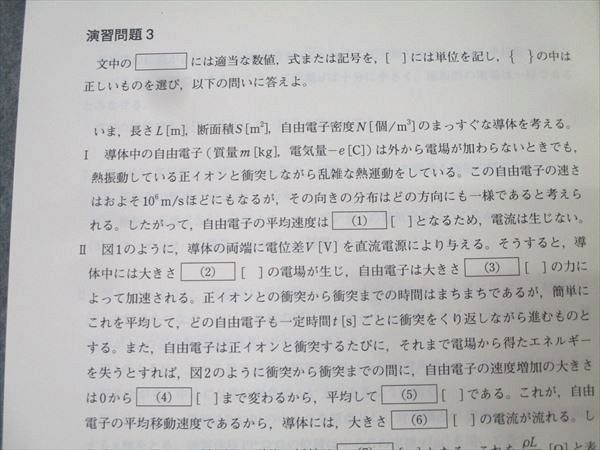 演習問題3
文中の には適当な数値，式または記号を，[ ]には単位を記し，{ }の中は
正しいものを選び，以下の問いに答えよ。
いま，長さL[m]，断面積S[m²]，自由電子密度N[個/m³]のまっすぐな導体を考える。
I 導体中の自由電子(質量m[kg]，電気量−e[C])は外から電場が加わらないときでも，
熱振動している正イオンと衝突しながら乱雑な熱運動をしている。この自由電子の速さ
はおよそ10⁶m/sほどにもなるが，その向きの分布はどの方向にも一様であると考えら
れる。したがって，自由電子の平均速度は (1) [ ]となるため，電流は生じない。
II 図1のように，導体の両端に電位差V[V]を直流電源により与える。そうすると，導
体中には大きさ (2) [ ]の電場が生じ，自由電子は大きさ (3) [ ]の力に
よって加速される。正イオンとの衝突から衝突までの時間はまちまちであるが，簡単に
これを平均して，どの自由電子も一定時間t[s]ごとに衝突をくり返しながら進むものと
する。また，自由電子は正イオンと衝突するたびに，それまで電場から得たエネルギー
を失うとすれば，図2のように衝突から衝突までの間に，自由電子の速度増加の大きさ
は0から (4) [ ]まで変わるから，平均して (5) [ ]である。これが，自由
電子の平均移動速度であるから，導体には，大きさ (6) [ ]の電流が流れる。し
ρL [Ω]と表